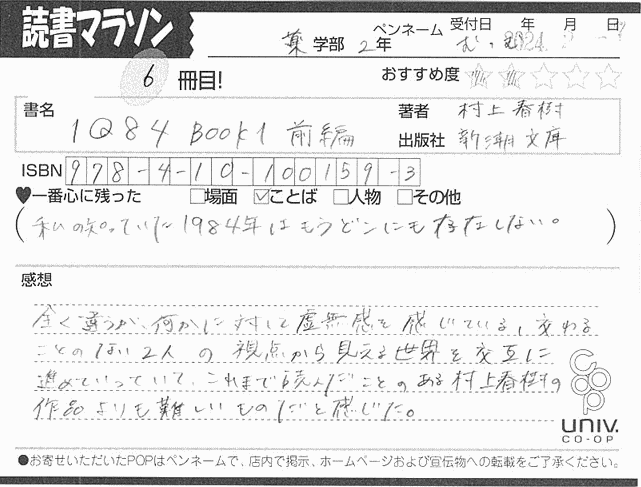 読書マラソン
薬 学部 2年 ペンネーム むつむ 受付日 2024年 月 日
6 冊目! おすすめ度 ★★☆☆☆
書名 1Q84 BOOK1 前編
著者 村上春樹
出版社 新潮文庫
ISBN 978-4-10-100159-3
♥一番心に残った □場面 ☑ことば □人物 □その他
(私の知っていた1984年はもうどこにも存在しない。)
感想
全く違うが、何かに対して虚無感を感じている、交わる
ことのない2人の視点から見える世界を交互に
進めていっていて、これまで読んだことのある村上春樹の
作品よりも難しいものだと感じた。
coop
UNIV.
CO-OP
●お寄せいただいたPOPはペンネームで、店内で掲示、ホームページおよび宣伝物への転載をご了承ください。